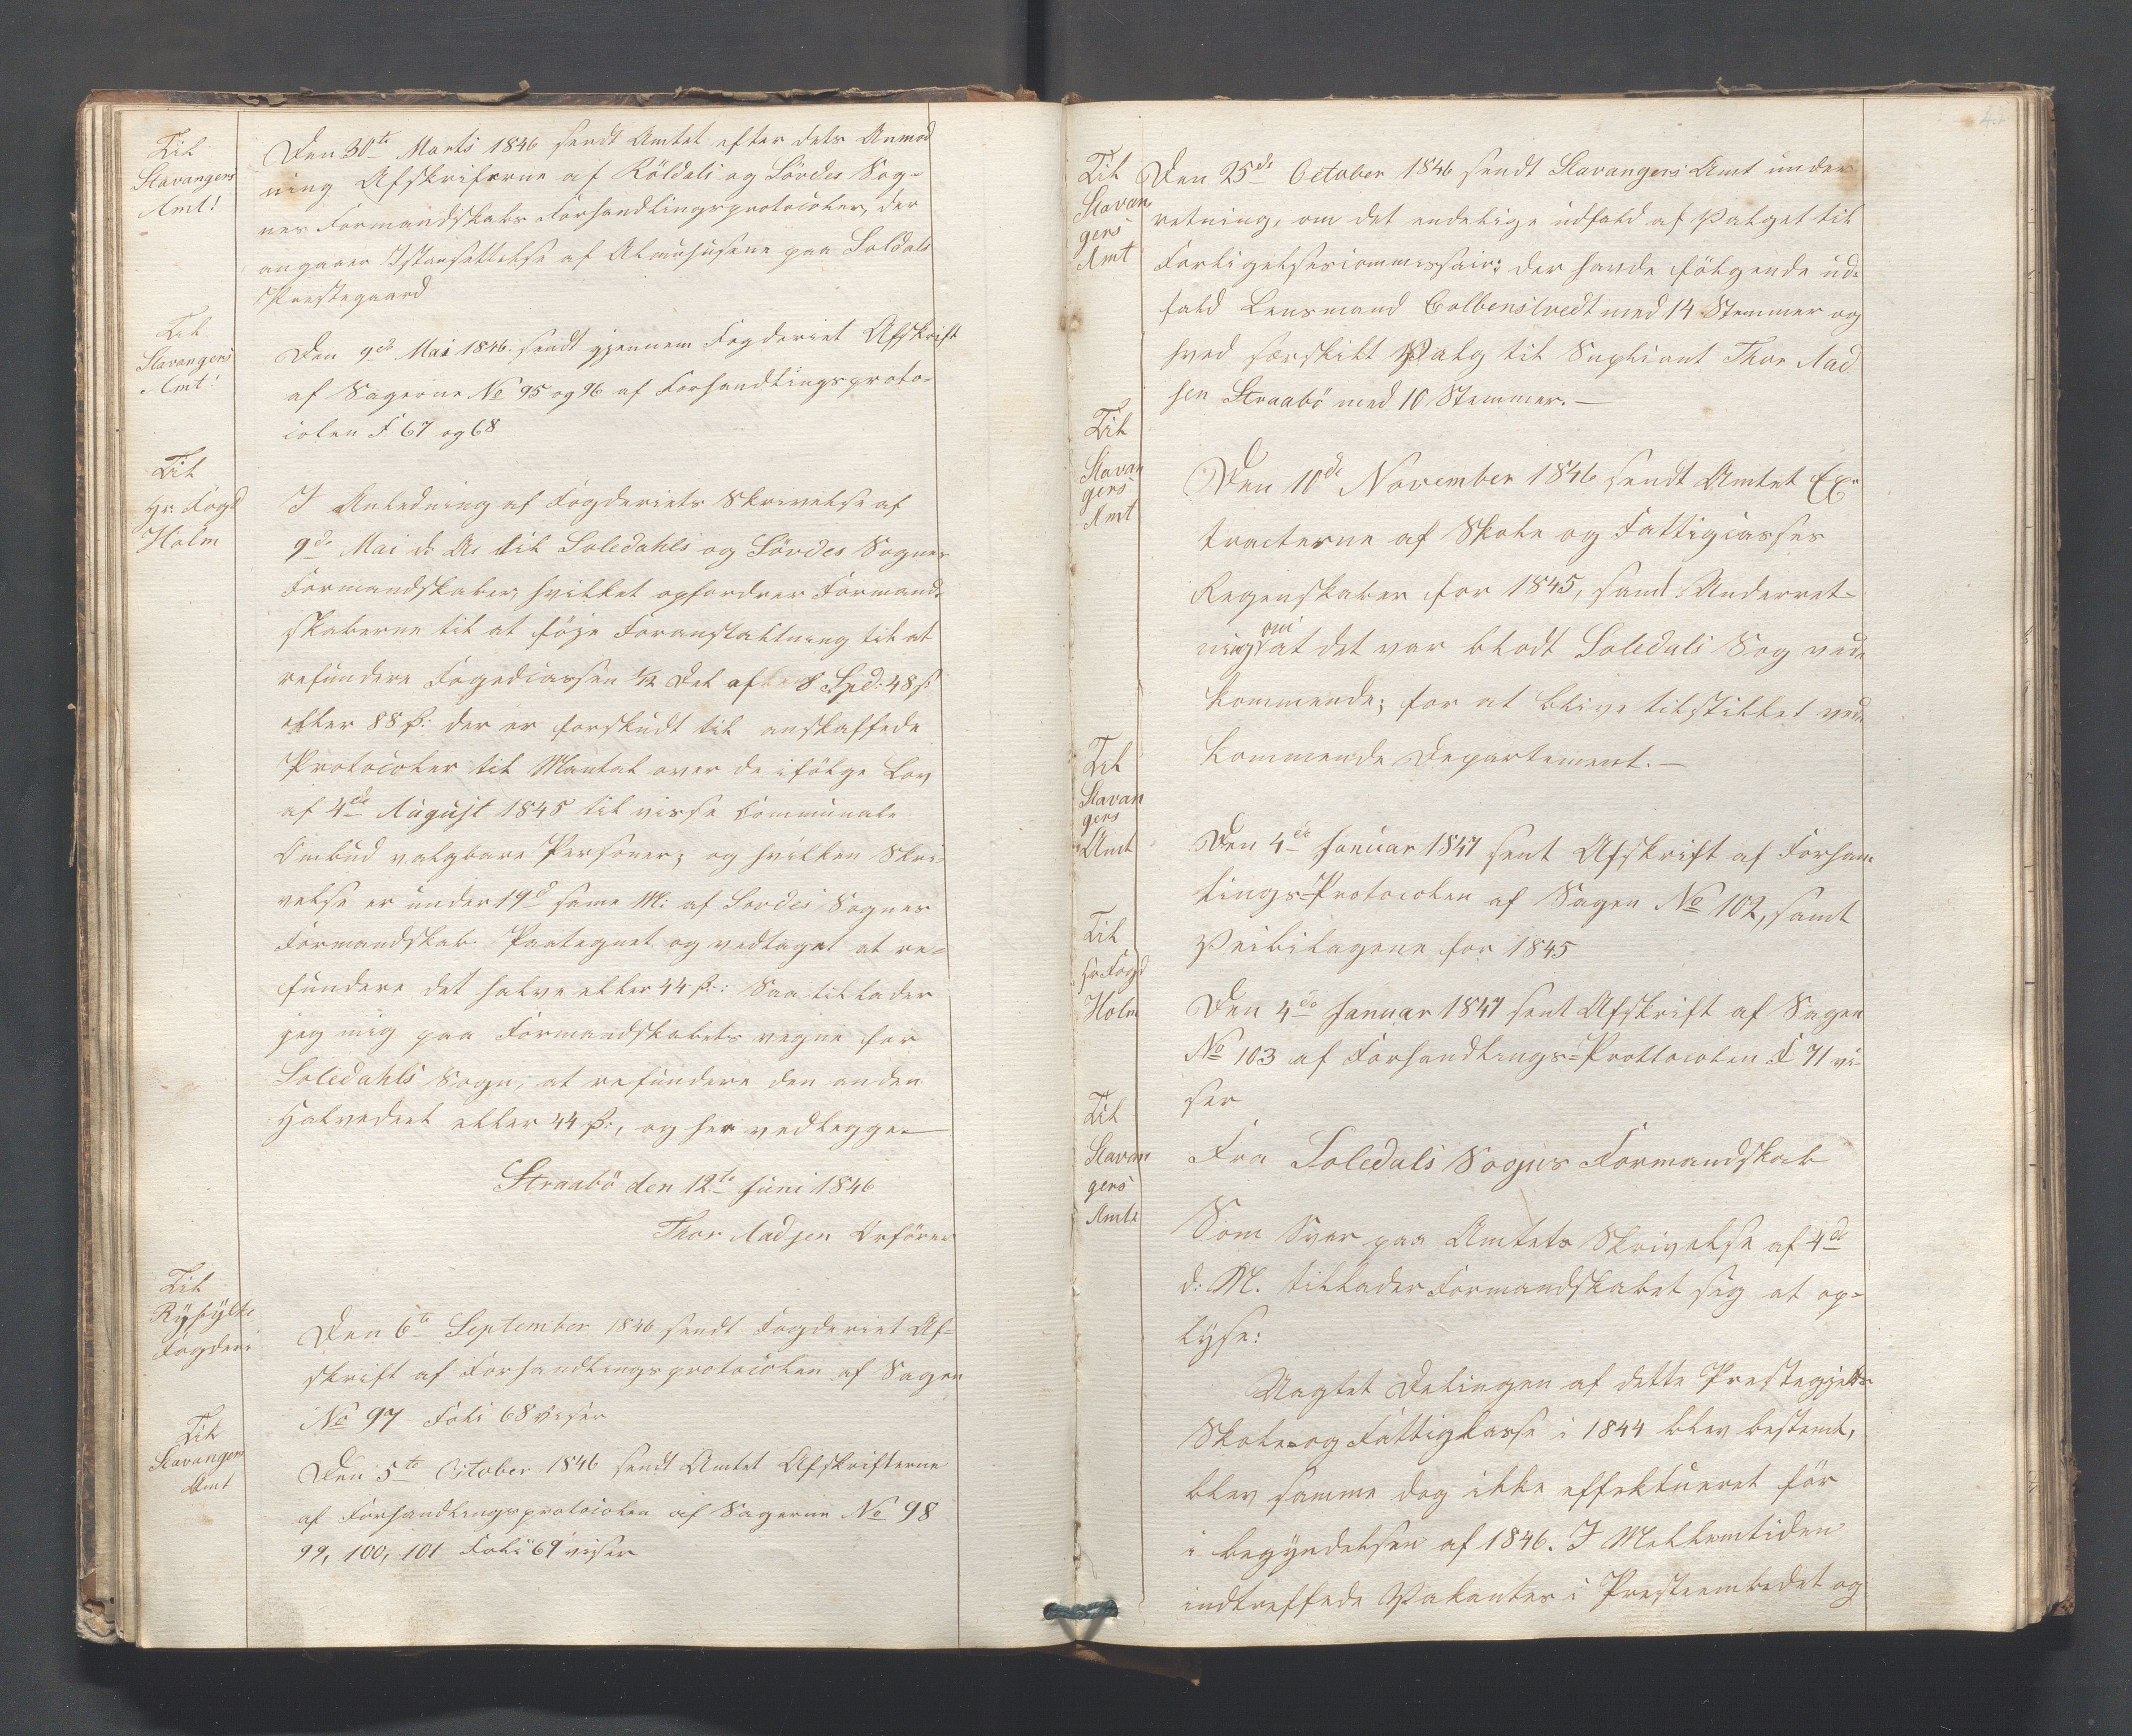 Til
Stavangers
Amt!
Den 30te Marts 1846 sendt Amtet efter dets Anmod
ning Afskrifterne af Röldals og Sövdes Sog-
nes Formandskabs Forhandlingsprotocoler, der
angaaer Istansettelse af Almuhusene paa Soldals
Prestegaard
Til
Stavangers
Amt!
Den 9de Mai 1846. sendt gjennem Fogderiet Afskrift
af Sagerne No 95 og 96 af Forhandlingsproto-
colen F 67 og 68
Til
Hr. Fogd
Holm
I Anledning af Fogderiets Skrivelse af
9de Mai d: A: til Soledahls og Sövdes Sognes
Formandskaber, hvilket opfordrer Formand-
skaberne til at föje Foranstaltning til at
refundere Fogedcassen 1/12 Del af 8 Spd: 48 s
eller 88 ß: der er forskudt til anskaffede
Protocoler til Mantal over de ifölge Lov
af 4de August 1845 til visse Communale
Ombud valgbare Personer; og hvilken Skri-
velse er under 19d same M: af Sovdes Sognes
Formandskab Paategnet og vedtaget at re-
fundere det halve eller 44 ß: Saa tillader
jeg mig paa Formandskabets vegne for
Soledahls Sogn, at refundere den anden
Halvedeel eller 44 ß:, og her vedlegges
Straabö den 12te Juni 1846
Thor Aadsen Orförer
Til
Ryfylke
Fogderi
Den 6te September 1846 sendt Fogderiet Af-
skrift af Forhandlingsprotocolen af Sagen
No 97 Foli 68 viser
Til
Stavangers
Amt
Den 5te October 1846 sendt Amtet Afskrifterne
af Forhandlingsprotocolen af Sagerne No 98
99, 100, 101 Foli 69 viser
Til
Stavan
gers
Amt
Den 25de October 1846 sendt Stavangers Amt under
retning, om det endelige udfald af Valget til
Forligelsescommissair; der havde fölgende ud-
fald Lensmand Colbenstvedt med 14 Stemmer og
hved særskilt Valg til Supliant Thor Aad
sen Straabö med 10 Stemmer. —
Til
Stavan
gers
Amt
Den 10de November 1846 sendt Amtet Ex-
tracterne af Skole og Fattigcasses
Regenskaber for 1845, samt Underret-
ning om at det var blodt Soledals Sog ved-
kommende; for at blive tilstillet ved-
kommende Departement. —
Til
Stavan
gers
Amt
Den 4de Januar 1847 sent Afskrift af Forhan-
lings-Protocolen af Sagen No 102, samt
Veibilagene for 1845
Til
Hr Fogd
Holm
Den 4de Januar 1847 sent Afskrift af Sagen
No 103 af Forhandlings-Prottocolen F 71 vi-
ser
Til
Stavan
gers
Amt
Fra Soledals Sogns Formandskab
Som Svar paa Amtets Skrivelse af 4de
d: M. tillader Formandskabet sig at op-
lyse:
Uagtet Delingen af dette Prestegjelds
Skole og Fattigkasse i 1844 blev bestemt,
blev samme dog ikke effektueret för
i begyndelsen af 1846. I Mellemtiden
indtreffede Vakantser i Presteembedet og